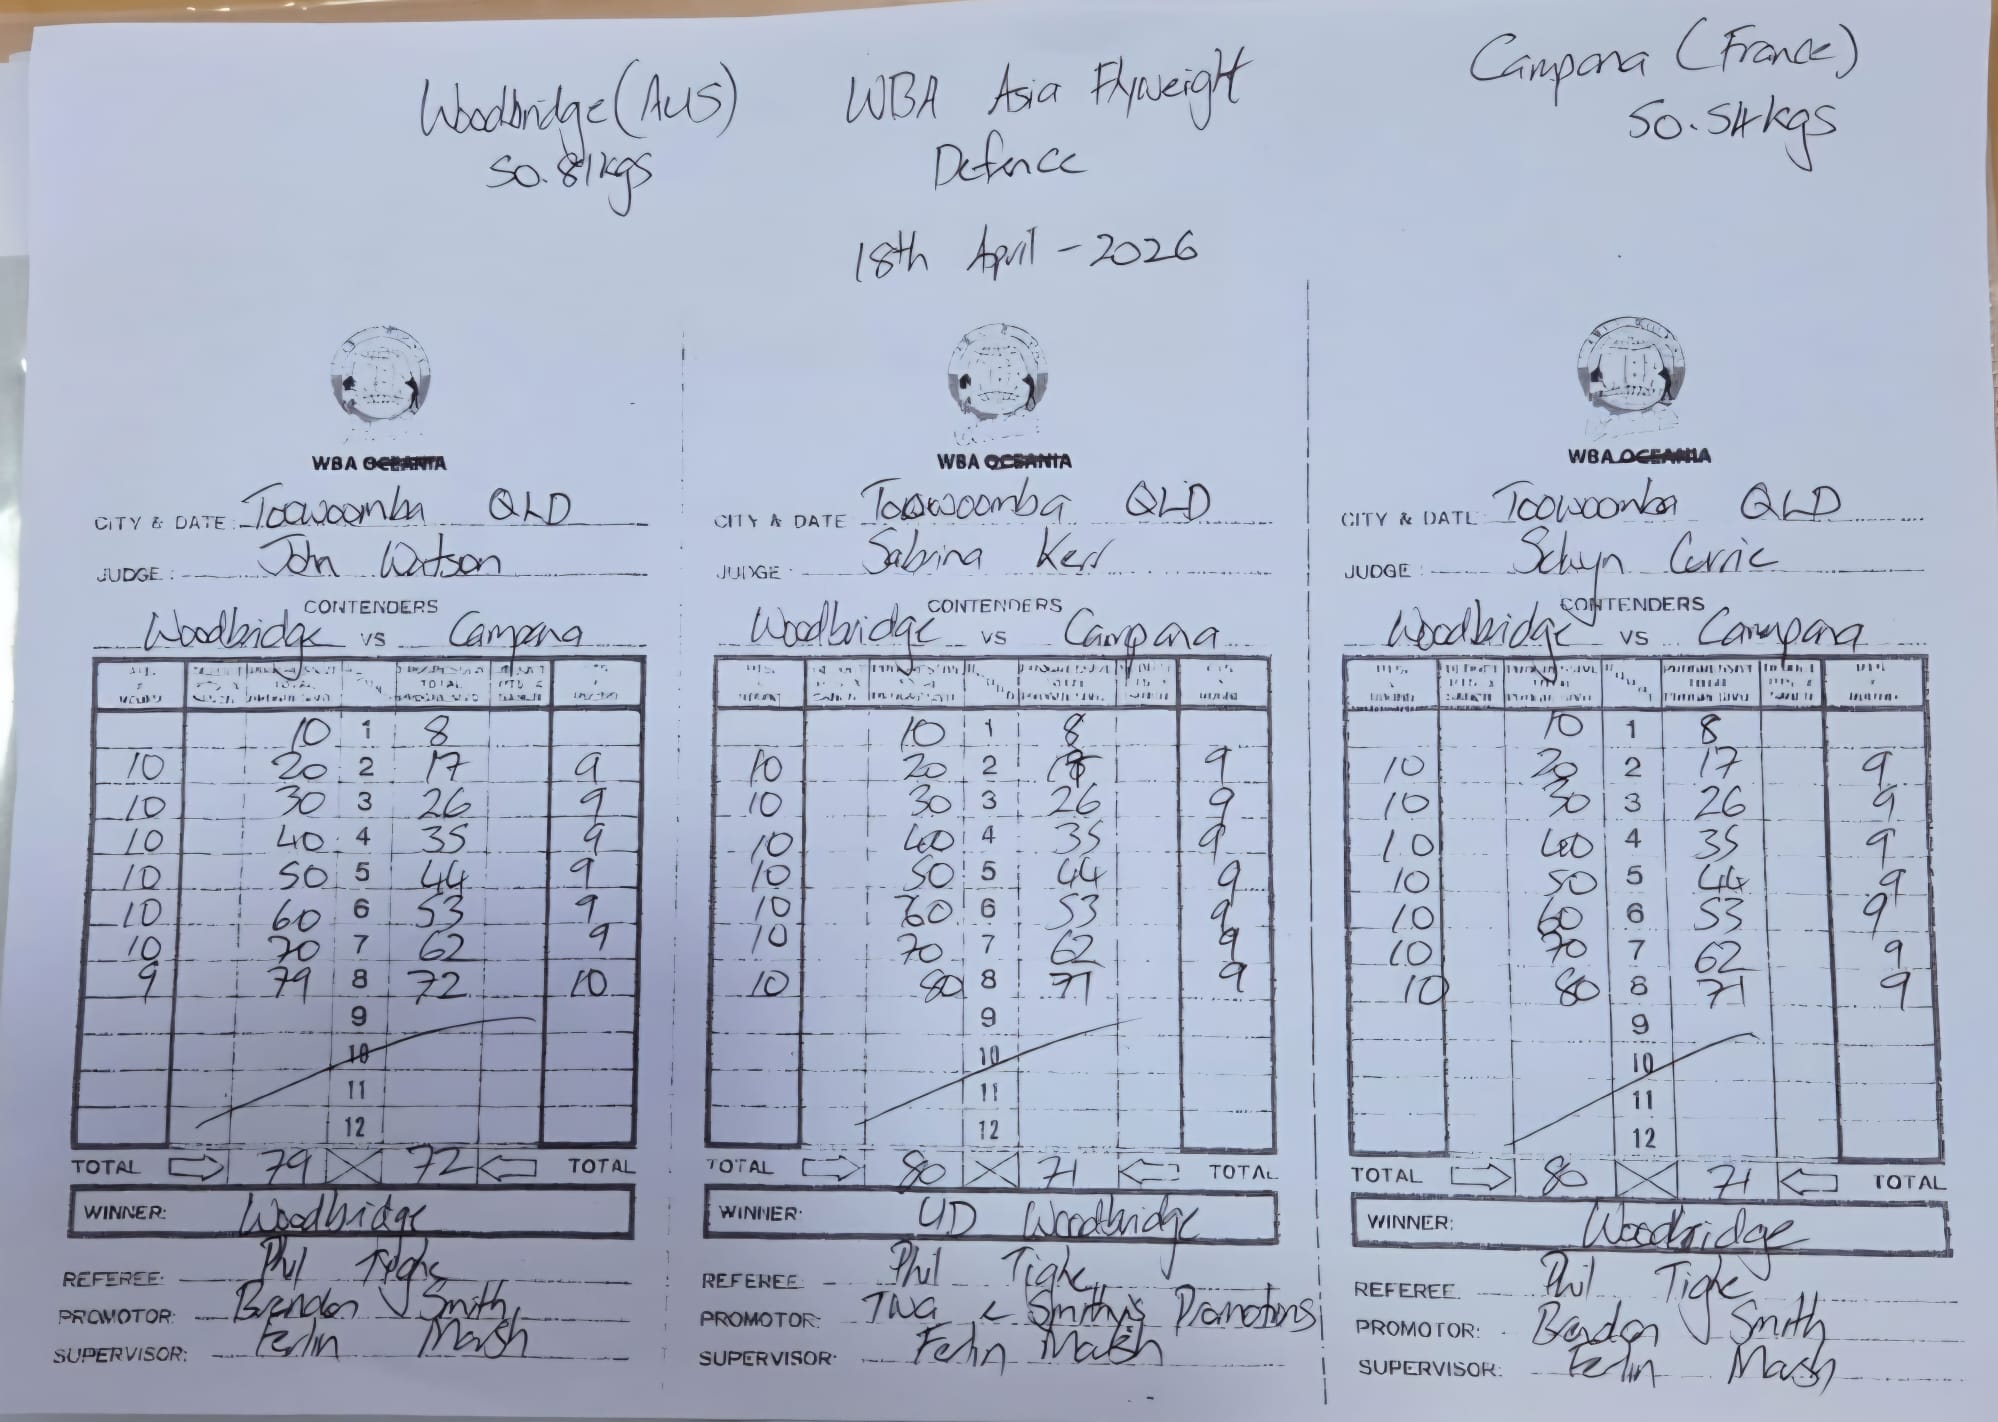 Woodbridge (AUS) WBA Asia Flyweight Campana (France)
50.81kgs Defence 50.54kgs
18th April - 2026
WBA OCEANIA
CITY & DATE: Toowoomba QLD
JUDGE: John Watson
CONTENDERS
Woodbridge VS Campana
10 1 8
10 20 2 17 9
10 30 3 26 9
10 40 4 35 9
10 50 5 44 9
10 60 6 53 9
10 70 7 62 9
9 79 8 72 10
9
10
11
12
TOTAL 79 72 TOTAL
WINNER: Woodbridge
REFEREE: Phil Tighe
PROMOTOR: Brendon Smith
SUPERVISOR: Ferlin Marsh
WBA OCEANIA
CITY & DATE Toowoomba QLD
JUDGE Sabrina Kerr
CONTENDERS
Woodbridge VS Campana
10 1 8
10 20 2 17 9
10 30 3 26 9
10 40 4 35 9
10 50 5 44 9
10 60 6 53 9
10 70 7 62 9
10 80 8 71 9
9
10
11
12
TOTAL 80 71 TOTAL
WINNER: UD Woodbridge
REFEREE Phil Tighe
PROMOTOR: TWA & Smithy's Promotions
SUPERVISOR: Ferlin Marsh
WBA OCEANIA
CITY & DATE Toowoomba QLD
JUDGE : Selwyn Currie
CONTENDERS
Woodbridge VS Campana
10 1 8
10 20 2 17 9
10 30 3 26 9
10 40 4 35 9
10 50 5 44 9
10 60 6 53 9
10 70 7 62 9
10 80 8 71 9
9
10
11
12
TOTAL 80 71 TOTAL
WINNER: Woodbridge
REFEREE Phil Tighe
PROMOTOR: Brendon Smith
SUPERVISOR: Ferlin Marsh